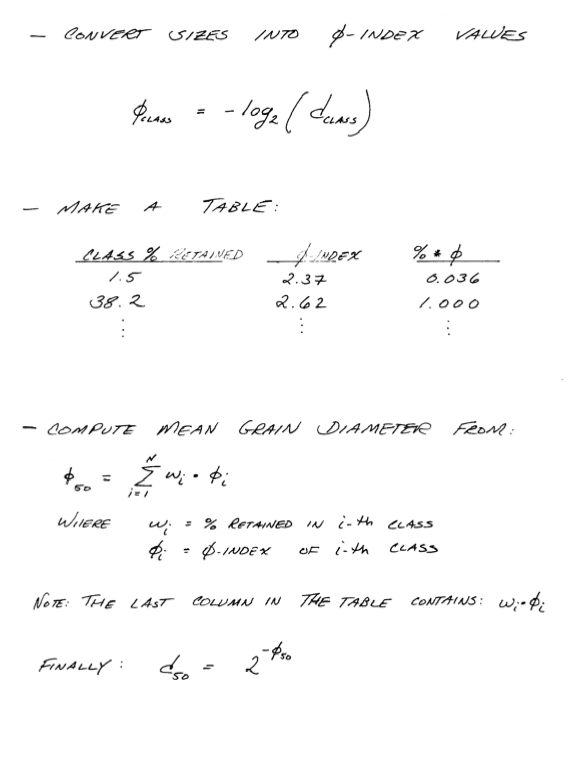 — CONVERT SIZES INTO ϕ-INDEX VALUES
ϕCLASS = -log₂(dCLASS)
— MAKE A TABLE:
CLASS % RETAINED ϕ-INDEX % * ϕ
1.5 2.37 0.036
38.2 2.62 1.000
⋮ ⋮ ⋮
— COMPUTE MEAN GRAIN DIAMETER FROM:
ϕ₅₀ = N Σ i=1 wᵢ • ϕᵢ
WHERE wᵢ = % RETAINED IN i-th CLASS
ϕᵢ = ϕ-INDEX OF i-th CLASS
NOTE: THE LAST COLUMN IN THE TABLE CONTAINS: wᵢ•ϕᵢ
FINALLY: d₅₀ = 2^-ϕ₅₀